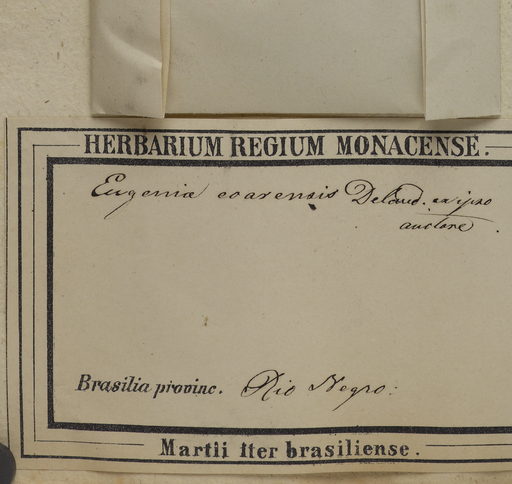 HERBARIUM REGIUM MONACENSE.
Eugenia coarensis DeCand. ex ipso
auctore.
Brasilia provinc. Rio Negro.
Martii Iter brasiliense.